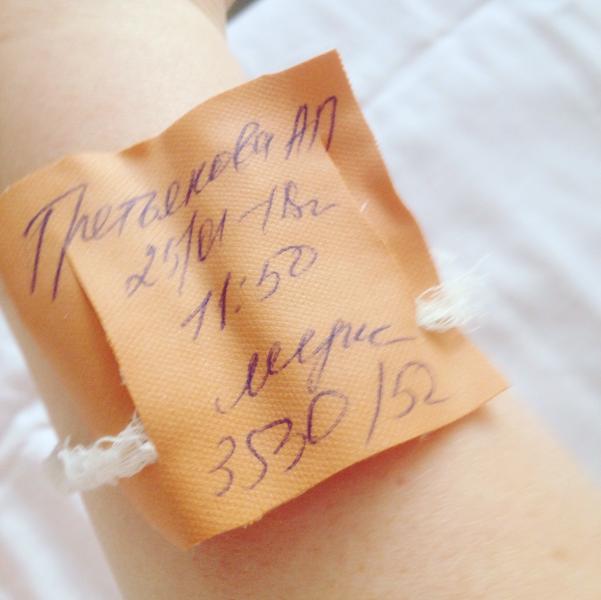 Третьякова АП
25/01-18г
11:50
мужс
3530/52